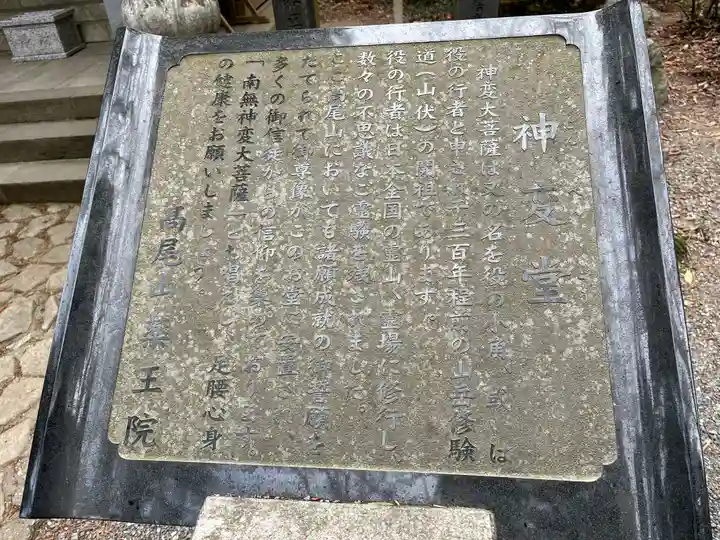 神変堂
神変大菩薩は又の名を役の小角、或は
役の行者と申き、千三百年程前の山岳修験
道(山伏)の開祖であります。
役の行者は日本全国の霊山、霊場に修行し、
数々の不思議なご霊験を遺されました。
ここ高尾山においても諸願成就の御誓願を
たてられて御尊像がこのお堂に安置され、
多くの御信徒からの信仰を集めております
「南無神変大菩薩」とお唱えし、足腰心身
の健康をお願いしましょう。
高尾山薬王院